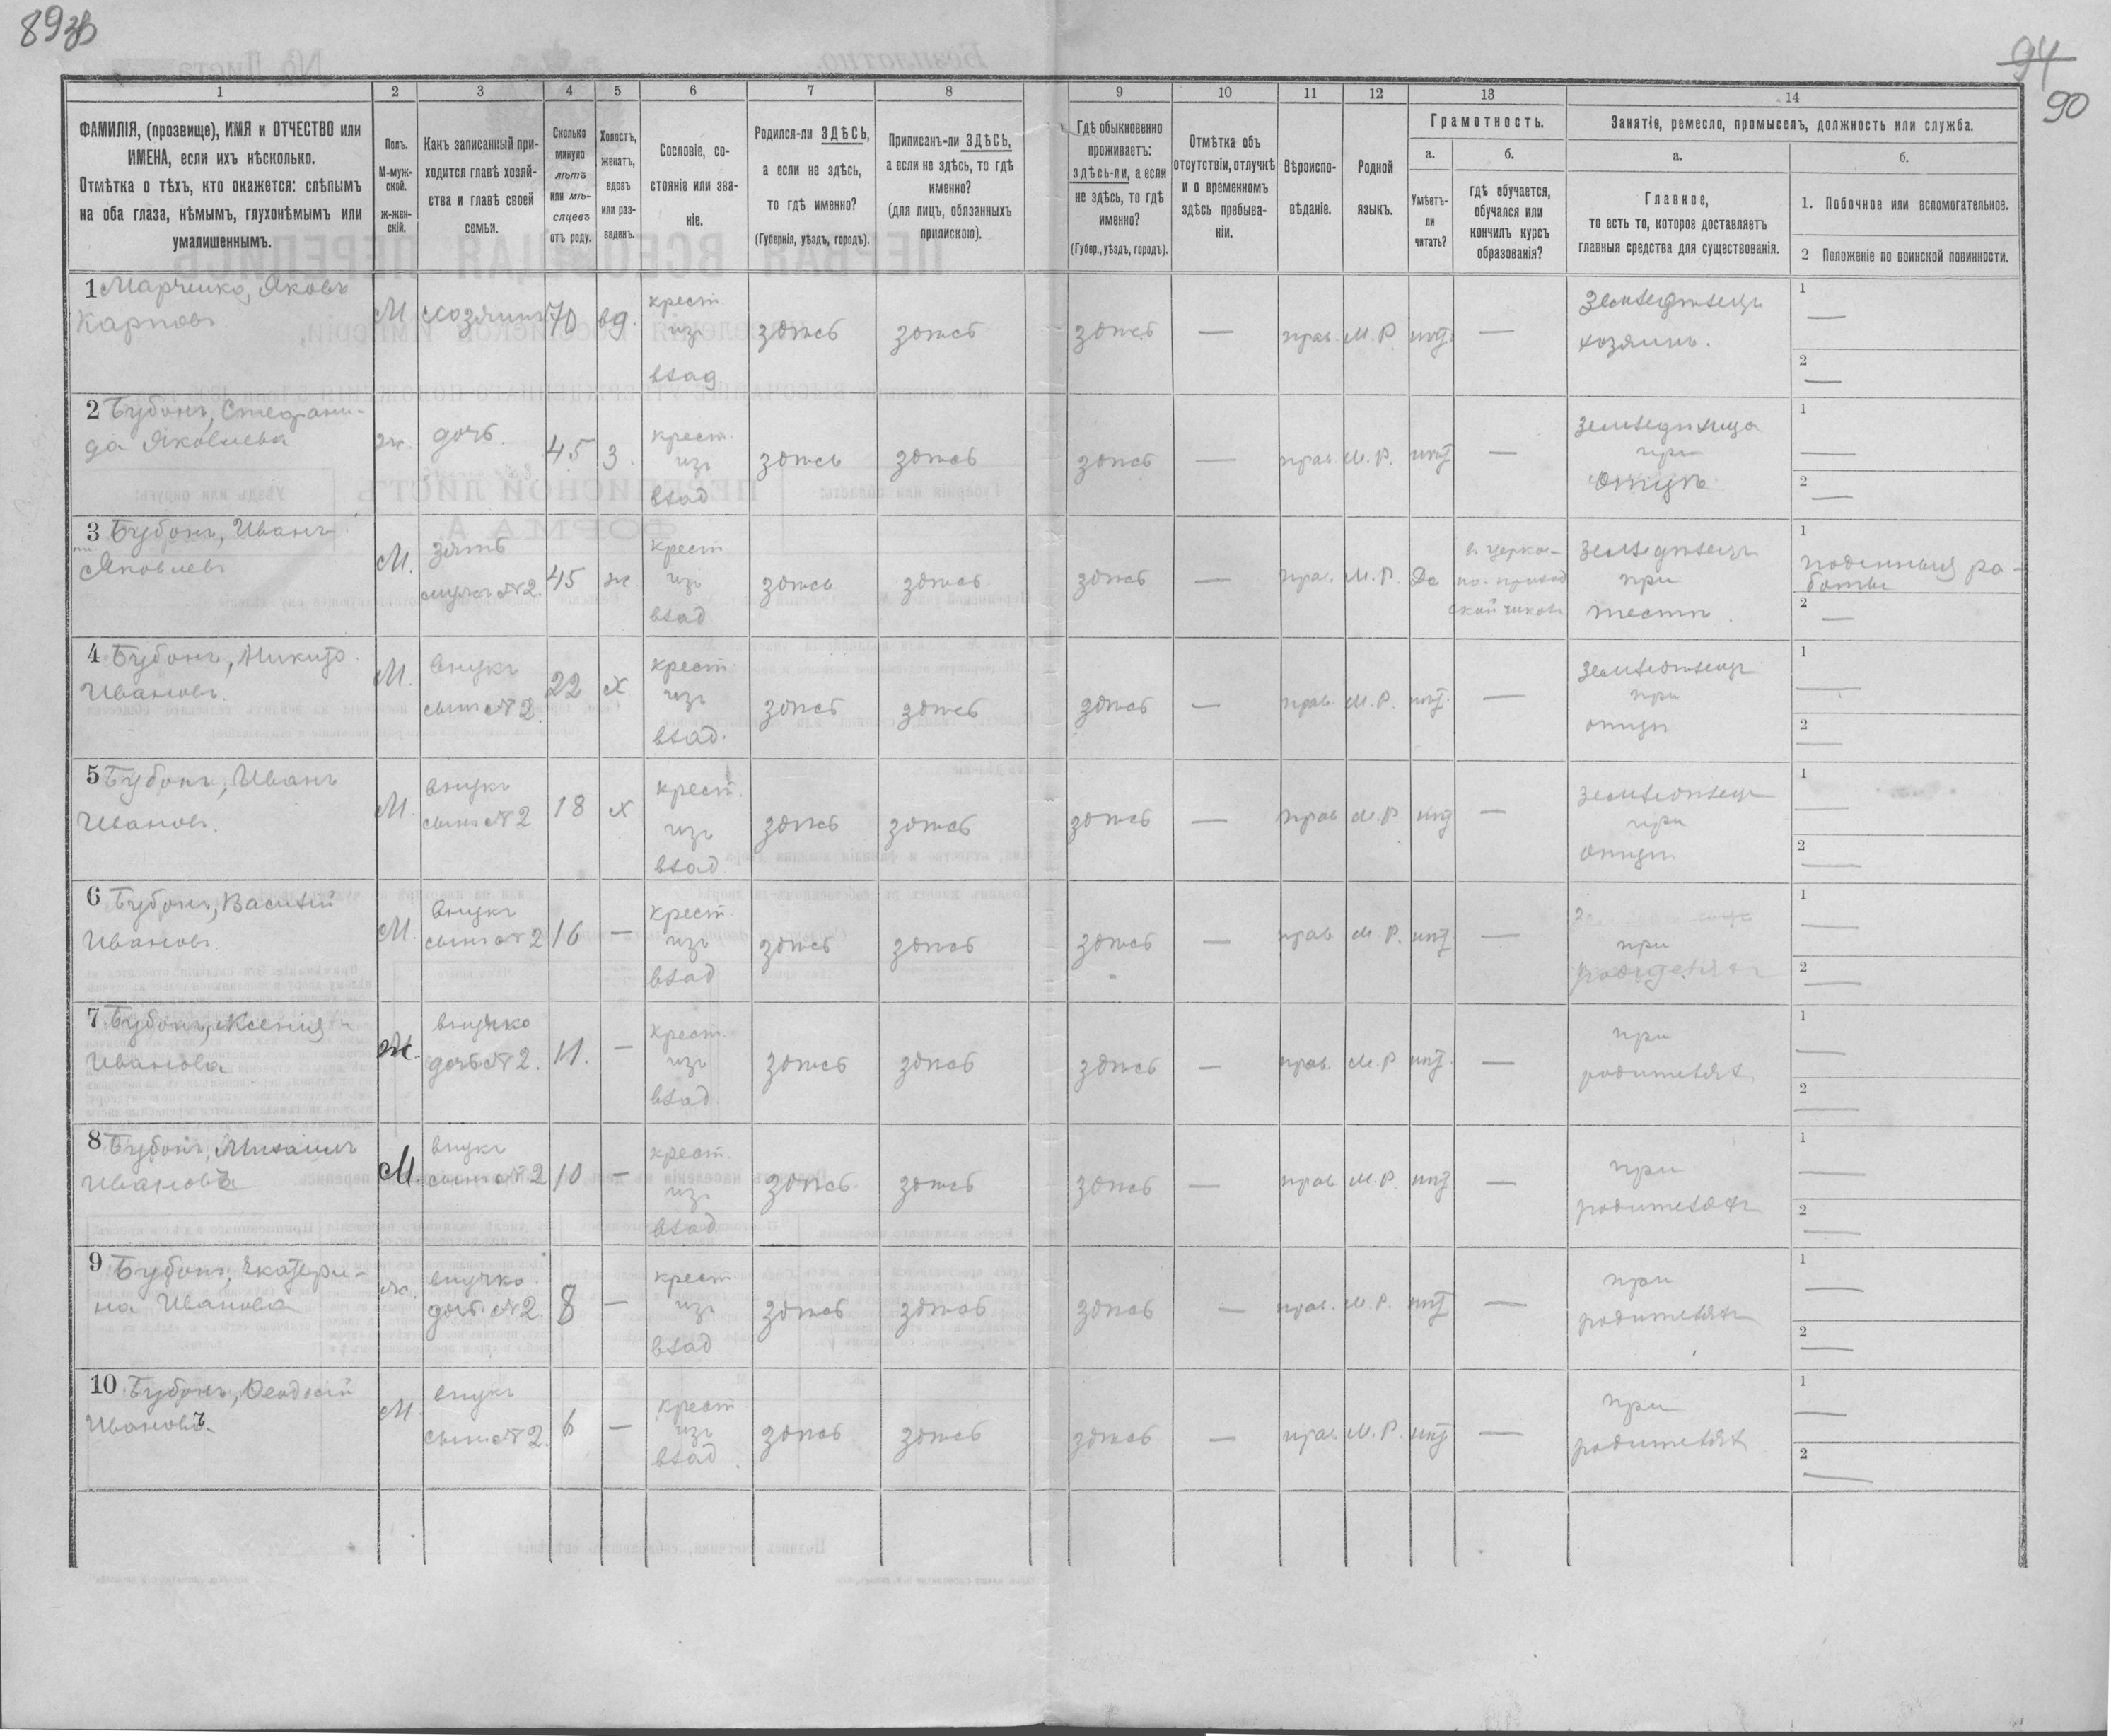 89зв
94
90
1
2
3
4
5
6
7
8
9
10
11
12
13
14
ФАМИЛІЯ, (прозвище), ИМЯ и ОТЧЕСТВО или
ИМЕНА, если ихъ нѣсколько.
Отмѣтка о тѣхъ, кто окажется: слѣпымъ
на оба глаза, нѣмымъ, глухонѣмымъ или
умалишеннымъ.
Полъ.
М-муж-
ской.
ж-жен-
скій.
Какъ записанный при-
ходится главѣ хозяй-
ства и главѣ своей
семьи.
Сколько
минуло
лѣтъ
или мѣ-
сяцевъ
отъ роду.
Холостъ,
женатъ,
вдовъ
или раз-
веденъ.
Сословіе, со-
стояніе или зва-
ніе.
Родился-ли ЗДѢСЬ,
а если не здѣсь,
то гдѣ именно?
(Губернія, уѣздъ, городъ).
Приписанъ-ли ЗДѢСЬ,
а если не здѣсь, то гдѣ
именно?
(для лицъ, обязанныхъ
припискою).
Гдѣ обыкновенно
проживаетъ:
здѣсь-ли, а если
не здѣсь, то гдѣ
именно?
(Губер., уѣздъ, городъ).
Отмѣтка объ
отсутствіи, отлучкѣ
и о временномъ
здѣсь пребыва-
ніи.
Вѣроиспо-
вѣданіе.
Родной
языкъ.
Грамотность.
а.
Умѣетъ-
ли
читать?
б.
гдѣ обучается,
обучался или
кончилъ курсъ
образованія?
Занятіе, ремесло, промыселъ, должность или служба.
а.
Главное,
то есть то, которое доставляетъ
главныя средства для существованія.
б.
1. Побочное или вспомогательное.
2 Положеніе по воинской повинности.
1 Марченко, Яковъ
Карповъ
М хозяинъ 70 вд.
крест.
изъ
влад
здѣсь здѣсь здѣсь — прав. М.Р. нѣт —
Земледѣлецъ
хозяинъ.
1 —
2 —
2 Бубонъ, Стефани-
да Яковлева
ж. дочь. 45 з.
крест.
изъ
влад
здѣсь здѣсь здѣсь — прав М.Р. нѣт —
земледѣлица
при
отцѣ
1 —
2 —
3 Бубонъ, Иванъ
Яковлевъ
М. зять
мужъ №2. 45 ж.
крест
изъ
влад
здѣсь здѣсь здѣсь — пра. М.Р. Да
земледѣлецъ
при
тестѣ
1 поденныя ра-
боты
2 —
4 Бубонъ, Никита
Ивановъ.
М. внукъ
сынъ №2. 22 х
крест.
изъ
влад.
здѣсь здѣсь здѣсь — прав. М.Р. нѣт. —
земледѣлецъ
при
отцѣ
1 —
2 —
5 Бубонъ, Иванъ
Ивановъ.
М. внукъ
сынъ №2 18 х
крест.
изъ
влад
здѣсь здѣсь здѣсь — прав М.Р. нѣт —
земледѣлецъ
при
отцѣ
1 —
2 —
6 Бубонъ, Василій
Ивановъ.
М. внукъ
сынъ №2 16 —
крест.
изъ
влад
здѣсь здѣсь здѣсь — прав М.Р. нѣт —
при
1 —
2 —
7 Бубонъ, Ксенія
Иванова
Ж. внучка
дочь №2. 11. —
крест.
изъ
влад
здѣсь здѣсь здѣсь — прав. М.Р нѣт. —
при
родителях
1 —
2 —
8 Бубонъ, Михаилъ
Ивановъ
М. внукъ
сынъ №2 10 —
крест.
изъ
влад
здѣсь здѣсь здѣсь — прав. М.Р. нѣт —
при
родителяхъ
1 —
2 —
9 Бубонъ, Екатери-
на Иванова
ж. внучка
дочь №2. 8 —
крест.
изъ
влад
здѣсь здѣсь здѣсь — прав. М.Р. нѣт —
при
родителяхъ
1 —
2 —
10 Бубонъ, Феодосій
Ивановъ.
М внукъ
сынъ №2. 6 —
крест
изъ
влад.
здѣсь здѣсь здѣсь — прав. М.Р. нѣт —
при
родителях
1 —
2 —